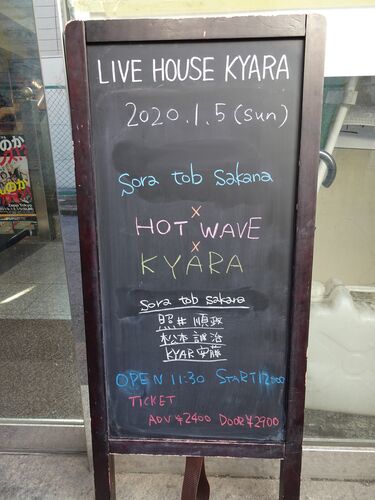 LIVE HOUSE KYARA
2020.1.5 (sun)
sora tob sakana
×
HOT WAVE
×
KYARA
sora tob sakana
照井順政
松本誠治
KYAR安藤
OPEN 11:30 START 12:00
TICKET
ADV ¥2400 DOOR ¥2900